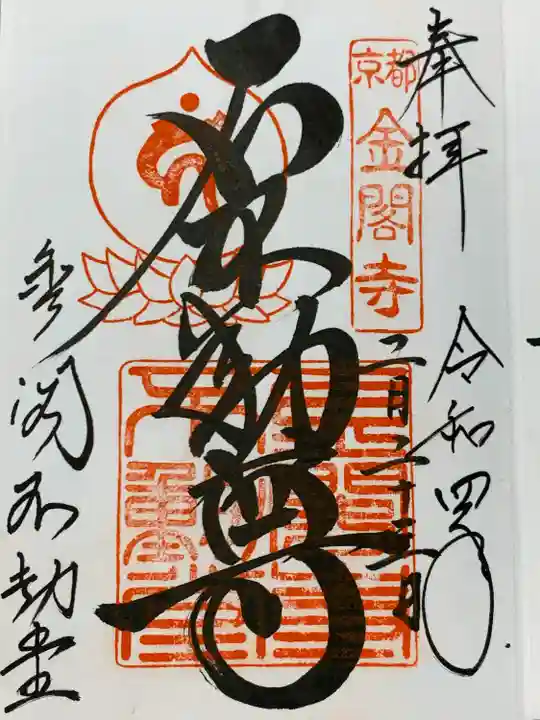 奉拝
令和四年
二月二十三日
京都
金閣寺
不動尊
金閣不動堂